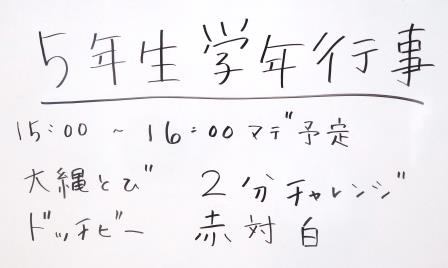 5年生学年行事
15:00 ~ 16:00 マデ予定
大縄とび 2分チャレンジ
ドッチビー 赤対白